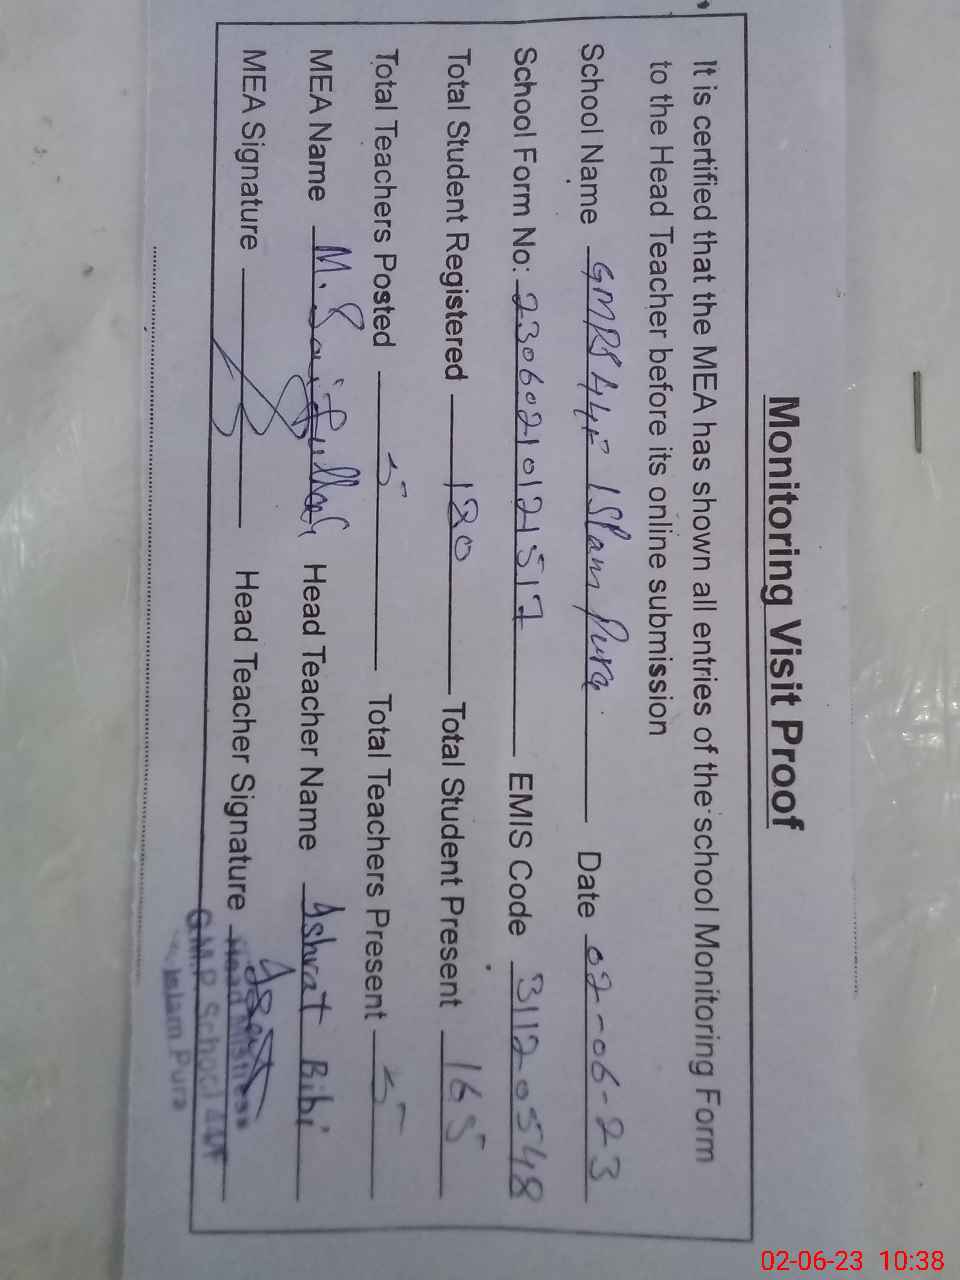 Monitoring Visit Proof
It is certified that the MEA has shown all entries of the school Monitoring Form
to the Head Teacher before its online submission
School Name GMPS 44F Islam Pura Date 02-06-23
School Form No: 23060210121517 EMIS Code 31120548
Total Student Registered 180 Total Student Present 165
Total Teachers Posted 5 Total Teachers Present 5
MEA Name M. Saifullah Head Teacher Name Ishrat Bibi
MEA Signature Head Teacher Signature
Head Mistress
G.M.P. School 44F
Islam Pura
02-06-23 10:38